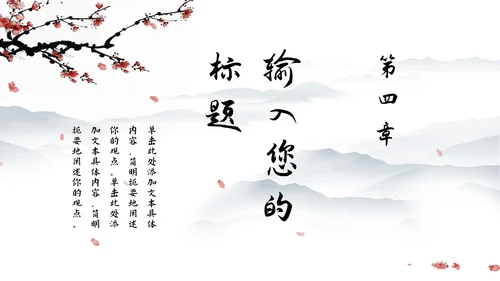 第四章
输入您的
标题
单击此处添加文本具体
内容，简明扼要地阐述
你的观点。单击此处添
加文本具体内容，简明
扼要地阐述你的观点。